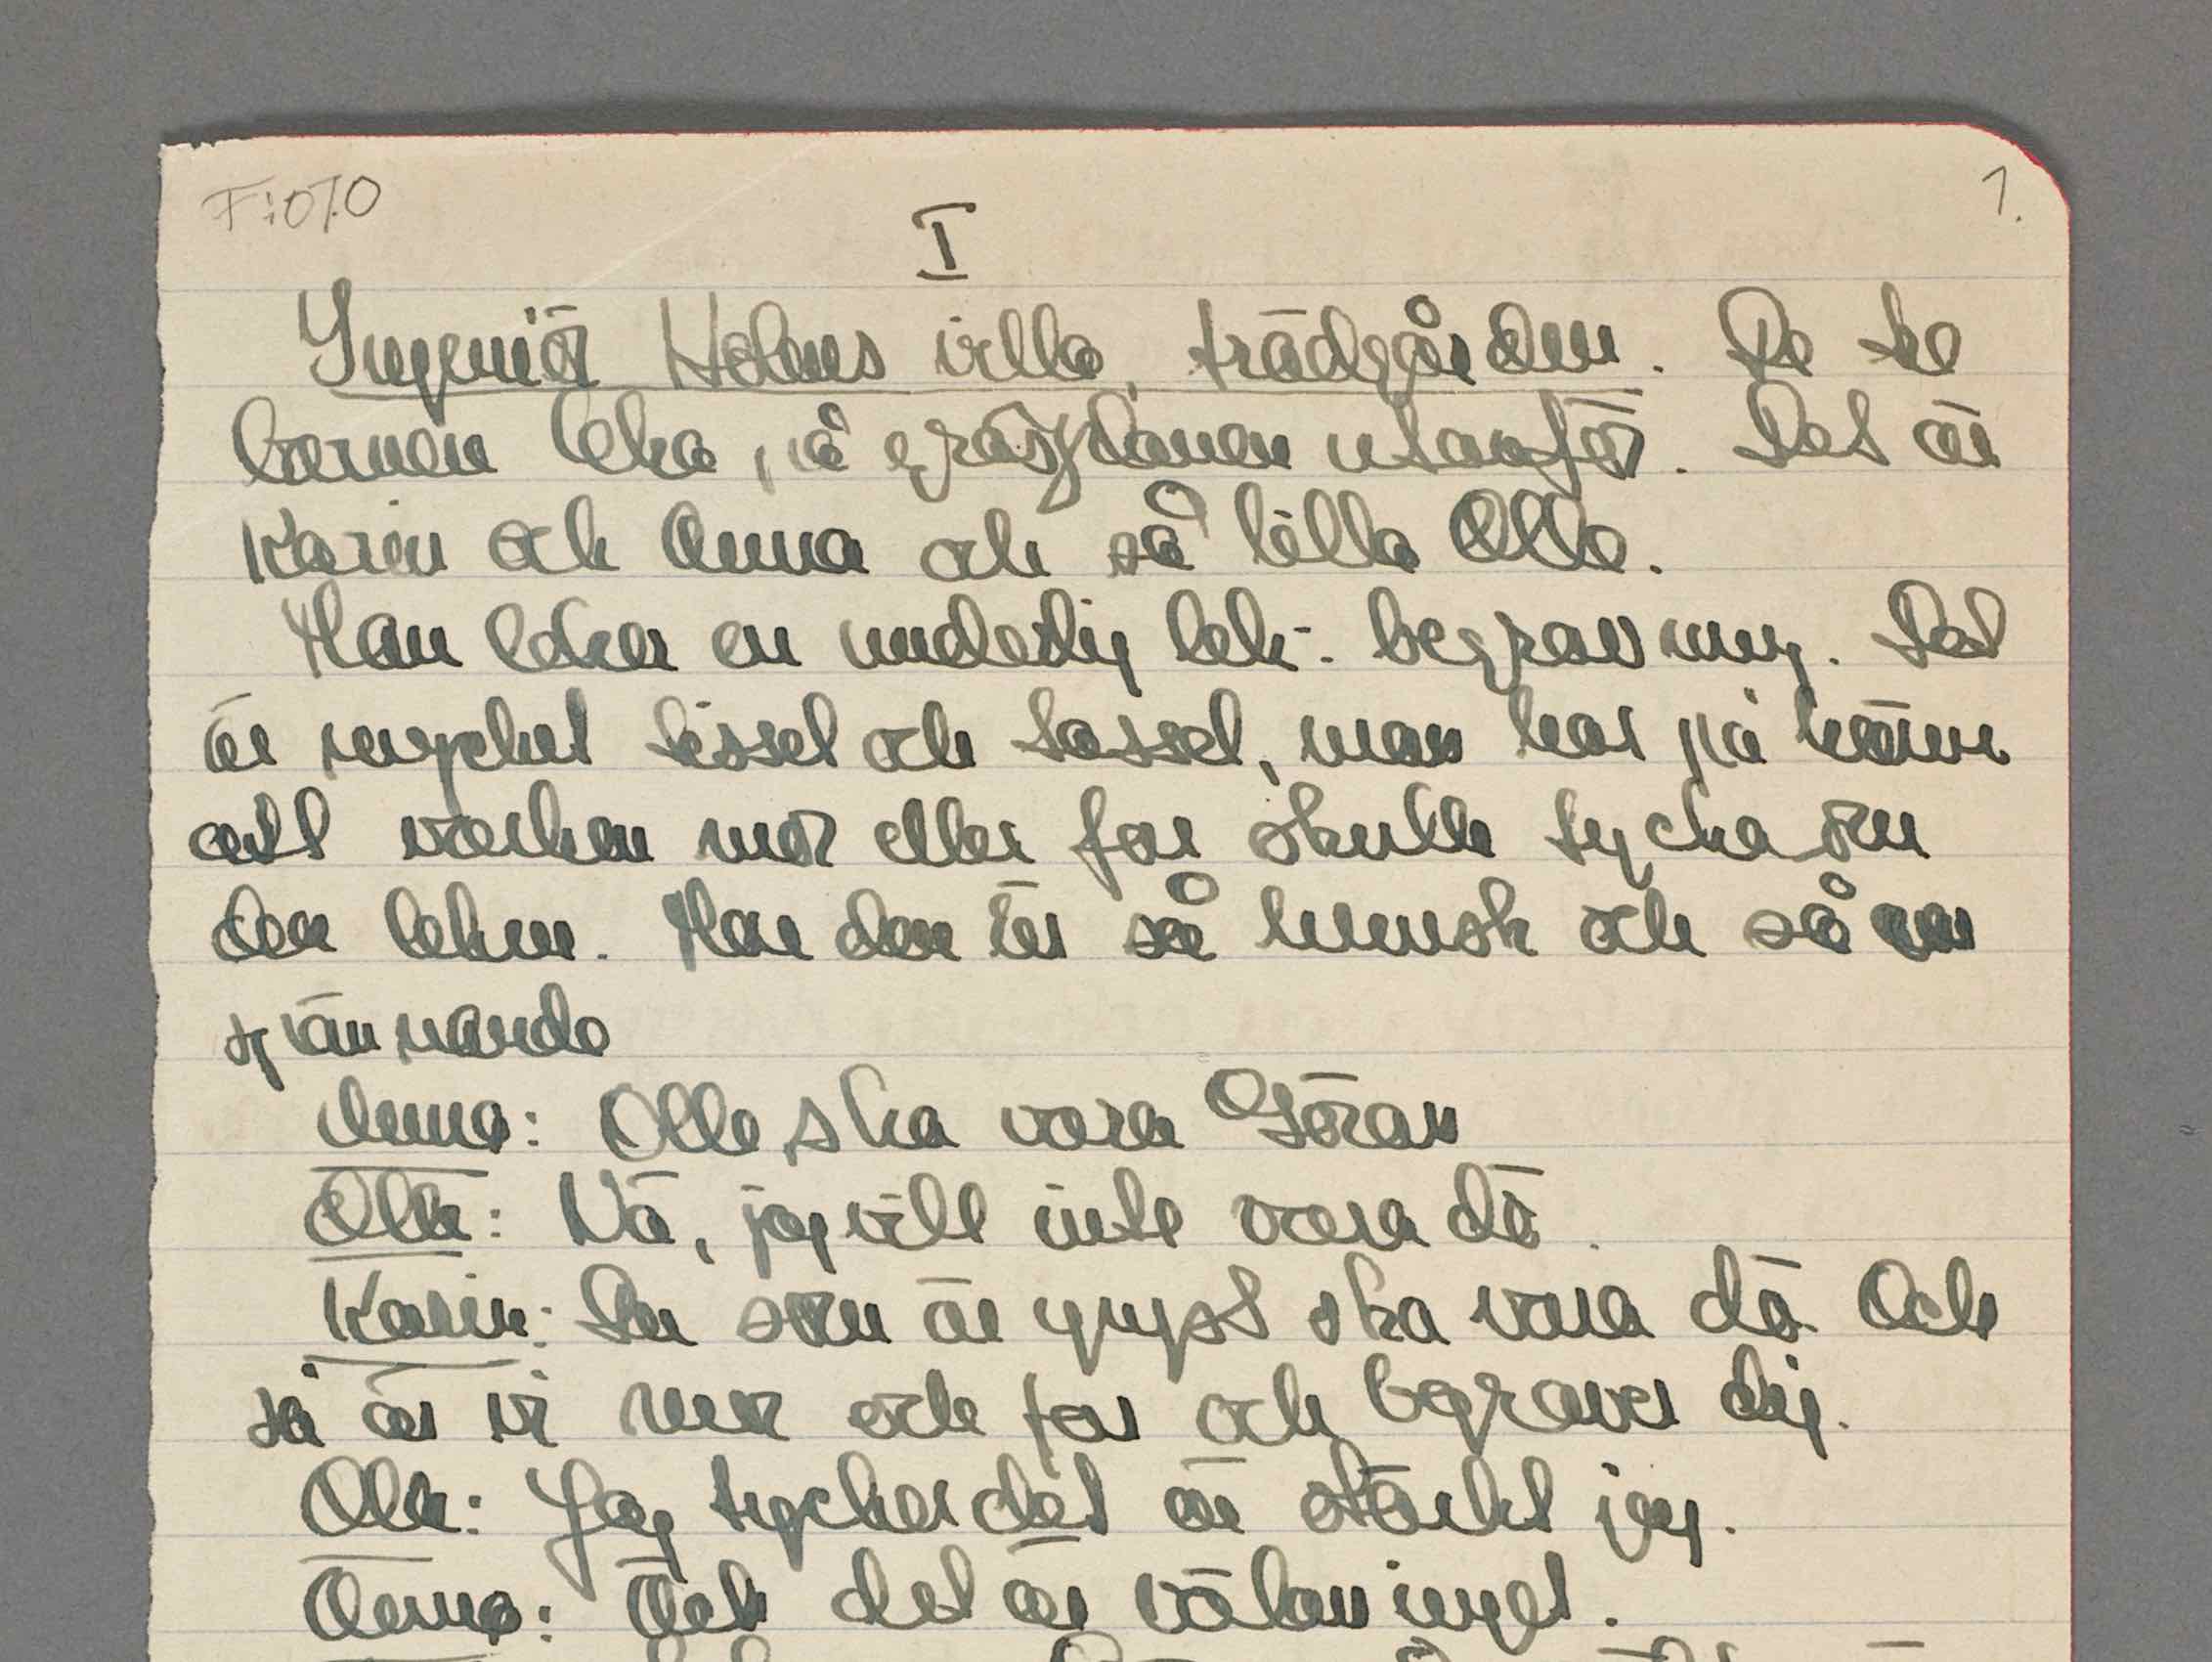 F:070
1.
I
Ingenjör Holms villa, trädgården. De tre
barnen leka på gräsplanen utanför. Det är
Karin och Anna och så lilla Olle.
Man leker en underlig lek: begravning. Det
är mycket tissel och tassel, man har på känn
att varken mor eller far skulle tycka om
den leken. Men den är så hemsk och så
spännande
Anna: Olle ska vara Göran
Olle: Nä, jag vill inte vara dö.
Karin: Du som är yngst ska vara dö. Och
så är vi mor och far och begraver dej.
Olle: Jag tycker det är otäckt jag.
Anna: Äsch det är väl inget.